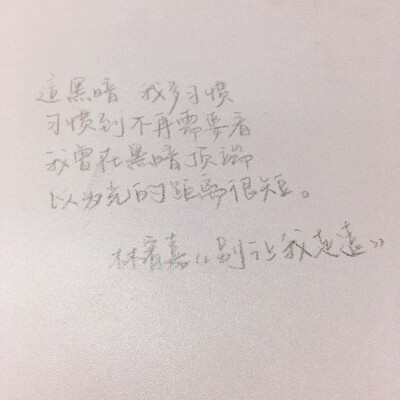 這黑暗 我多习惯
习惯到不再需要看
我曾在黑暗顶端
以为光的距离很短。
林宥嘉《别让我走遠》